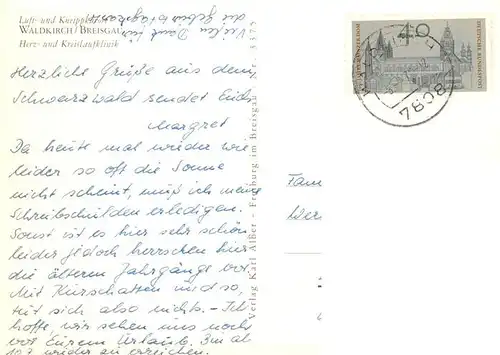 Luft- und Kneippkurort
WALDKIRCH / BREISGAU
Herz- und Kreislaufklinik
Vielen Dank für
die Geburtstags
Herzliche Grüße aus dem
Schwarzwald sendet Euch
Margret
Da heute mal wieder wie
leider so oft die Sonne
nicht scheint, muß ich meine
Schreibschulden erledigen.
Sonst ist es hier sehr schön
leider jedoch herrschen hier
die älteren Jahrgänge vor.
Mit Kurschatten und so,
tut sich also nichts. - Ich
hoffe, wir sehen uns noch
vor Eurem Urlaub. Bin ab
10.7. wieder zu erreichen.
Verlag Karl Alber - Freiburg im Breisgau
40
DEUTSCHE BUNDESPOST
7808
Fam